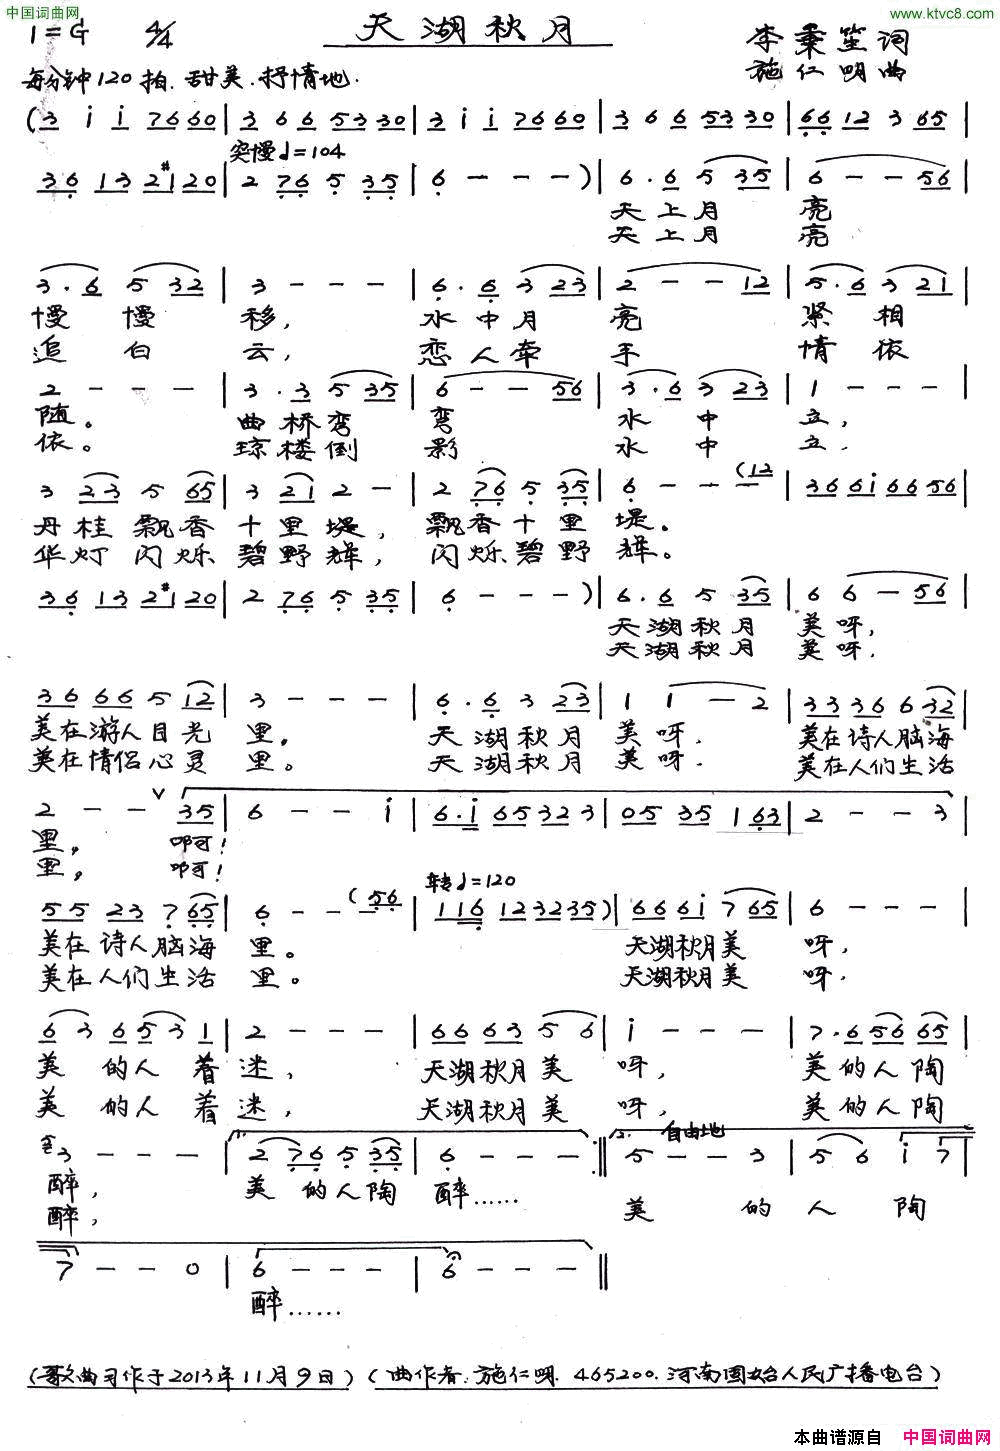 中国词曲网
www.ktvc8.com
1=G 4/4 天湖秋月 李秉笙词
施仁明曲
每分钟120拍.甜美.抒情地.
(3 i i 7660 | 3 6 6 5330 | 3 i i 7660 | 3 6 6 5330 | 6612 3 65 |
突慢♩=104
36 13 2#120 | 2 76 5 35 | 6 - - - ) | 6 . 6 5 35 | 6 - - 56 |
天上月 亮
天上月 亮
3 . 6 5 32 | 3 - - - | 6 . 6 3 23 | 2 - - 12 | 5 . 6 3 21 |
慢 慢 移, 水中月 亮 紧 相
追 白 云, 恋人牵 手 情 依
2 - - - | 3 . 3 5 35 | 6 - - 56 | 3 . 6 3 23 | 1 - - - |
随。 曲桥弯 弯 水 中 立,
依。 琼楼倒 影 水 中 立.
3 23 5 65 | 3 21 2 - | 2 76 5 35 | 6 - - (12 | 366i6656 |
丹桂飘香 十里堤, 飘香十里 堤。
华灯闪烁 碧野辉, 闪烁碧野 辉。
36 13 2#120 | 2 76 5 35 | 6 - - - ) | 6 . 6 5 35 | 6 6 - 56 |
天湖秋月 美呀,
天湖秋月 美呀.
36 66 5 12 | 3 - - - | 6 . 6 3 23 | 1 1 - 2 | 33 36 6 32 |
美在游人目光 里。 天湖秋月 美呀. 美在诗人脑海
美在情侣心灵 里。 天湖秋月 美呀. 美在人们生活
2 - - ∨ 35 | 6 - - i | 6.i 65323 | 05 35 1 63 | 2 - - 3 |
里, 啊!
里, 啊!
转♩=120
55 23 7 65 | 6 - - (56 | 1116 123235) | 666i 7 65 | 6 - - - |
美在诗人脑海 里。 天湖秋月美 呀,
美在人们生活 里。 天湖秋月美 呀.
6 3 653 1 | 2 - - - | 6663 5 6 | i - - - | 7.656 65 |
美 的人 着 迷, 天湖秋月美 呀, 美的人陶
美 的人 着 迷, 天湖秋月美 呀, 美的人陶
1. 2. 自由地
3 - - - | 2 76 5 35 | 6 - - - :‖ 5 - - 3 | 5 6 i 7 |
醉, 美 的人陶 醉…… 美 的 人 陶
醉,
7 - - 0 | 6 - - - | 6 - - - ‖
醉……
(歌曲习作于2013年11月9日) (曲作者:施仁明. 465200.河南固始人民广播电台)
本曲谱源自 中国词曲网